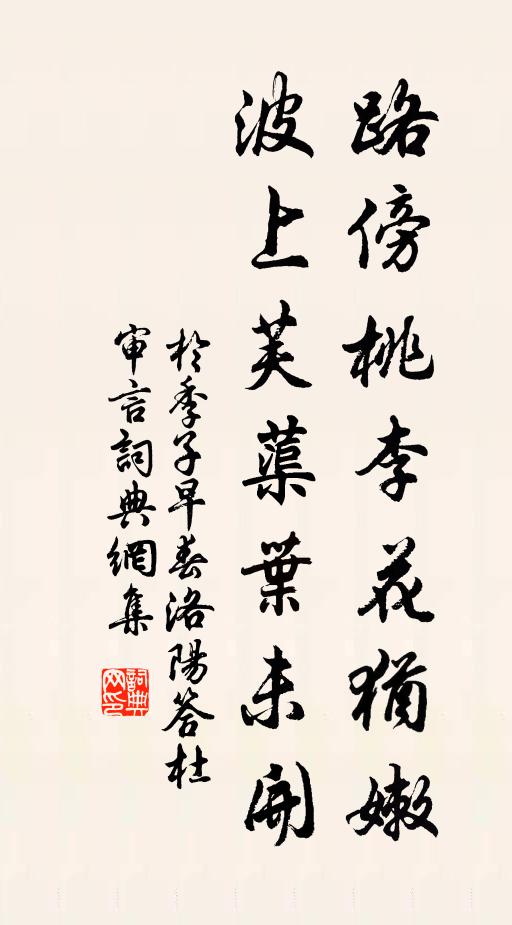 路傍桃李花猶嫩
波上芙蕖葉未開
於季子早春洛陽答杜
审言詞典網集
詞典
网印